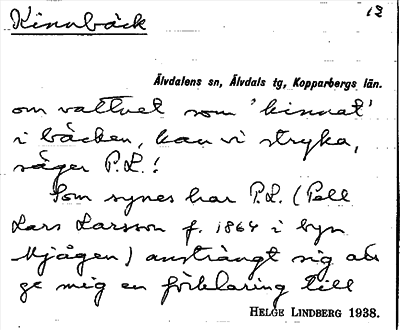 Kinnbäck
12
Älvdalens sn, Älvdals tg, Kopparbergs län.
om vattnet som 'kinnat'
i bäcken, kan vi stryka,
säger P.L.!
Som synes har P.L. (Pell
Lars Larsson f. 1864 i byn
Mjågen) ansträngt sig att
ge mig en förklaring till
HELGE LINDBERG 1938.